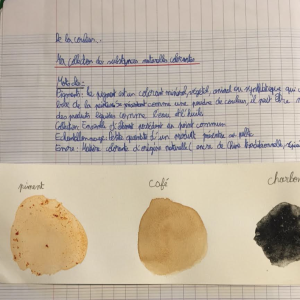 De la couleur...
Ma collection des substances naturelles colorantes
Mots clés :
Pigments : Le pigment est un colorant minéral, végétal, animal ou synthétique qui
se présentant comme une poudre de couleur, il peut être
des produits liquides comme l'eau et l'huile
Collection : Ensemble d'éléments possédant un point commun
Echantillonnage : Petite quantité d'un produit
Encre : Matière colorante d'origine naturelle (encre de Chine traditionnelle,
piment
café
charbon